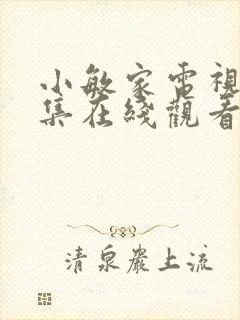 小敏家電視
集在綫觀看
清泉巖上流